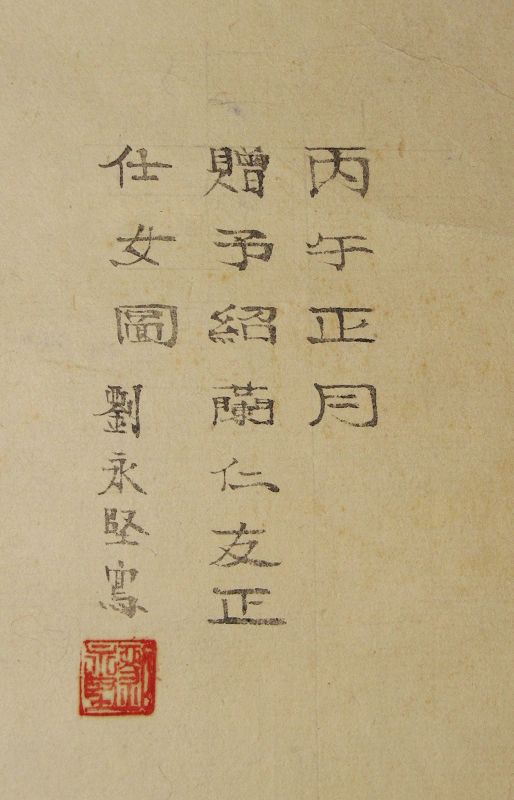 丙午正月
贈予紹蘭仁友正
仕女圖 劉永堅寫
劉永堅